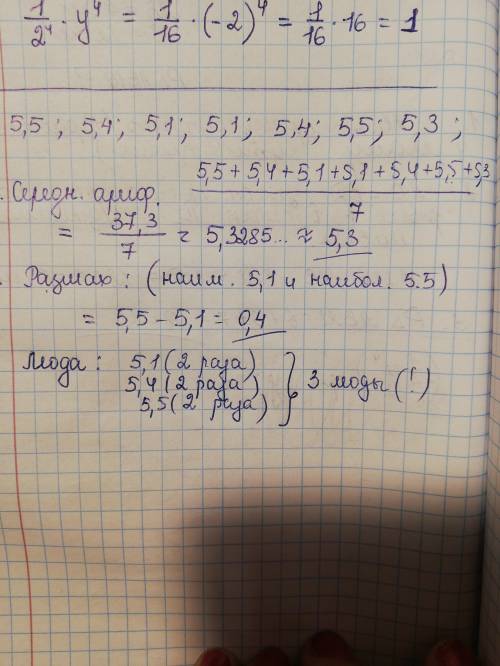 1/2⁴ · y⁴ = 1/16 · (-2)⁴ = 1/16 · 16 = 1
5,5 ; 5,4; 5,1; 5,1; 5,4; 5,5; 5,3 ;
. Середн. ариф. (5,5 + 5,4 + 5,1 + 5,1 + 5,4 + 5,5 + 5,3)/7
= 37,3/7 = 5,3285... ≈ 5,3
. Размах : (наим. 5,1 и наибол. 5.5)
= 5,5 - 5,1 = 0,4
Мода : 5,1 (2 раза)
5,4 (2 раза) } 3 моды (!)
5,5 (2 раза)